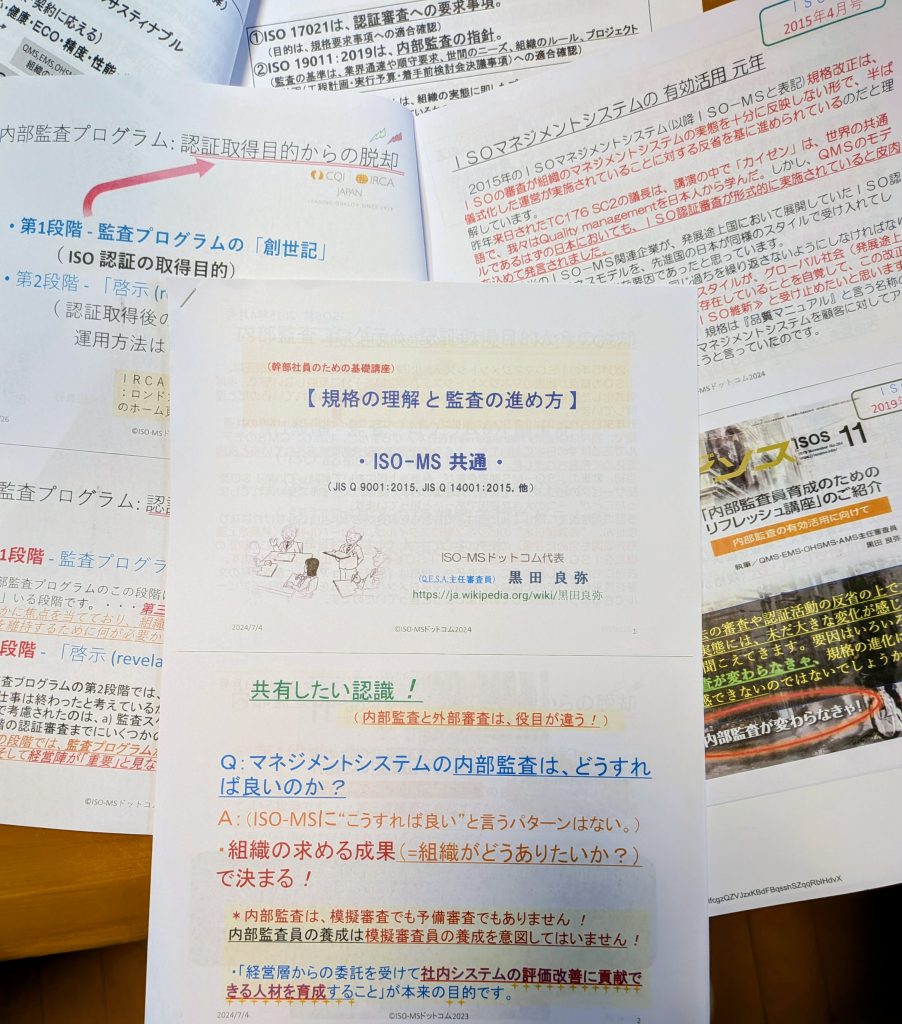 サスティナブル
契約に応える）
・健康・ECO・精度・性能
QMS,EMS,OHSM
①ISO 17021は、認証審査への要求事項。
（目的は、規格要求事項への適合確認）
②ISO 19011：2019は、内部監査の指針。
（監査の基準は、業界通達や順守要求、世間のニーズ、組織のルール、プロジェクト
（工程計画・実行予算・着手前検討会決議事項）への適合確認）
は、組織の実態に即した
2015年4月号
ISOマネジメントシステムの 有効活用 元年
2015年のISOマネジメントシステム(以降ISO-MSと表記)規格改正は、
ISOの審査が組織のマネジメントシステムの実態を十分に反映しない形で、半ば
儀式化した運営が実施されていることに対する反省を基に進められているのだと理
解しています。
昨年来日されたTC176 SC2の議長は、講演の中で「カイゼン」は、世界の共通
語で、我々はQuality managementを日本人から学んだ。しかし、QMSのモデ
ルであるはずの日本においても、ISO認証審査が形式的に実施されていると皮肉
を込めて発言されました。
のISO-MS関連企業が、発展途上国において展開していたISO認
スモデルを、先進国の日本が同様のスタイルで受け入れてし
な要因であったと思っています。
同じ過ちを繰り返さないようにしなければない
スタイルが、グローバル社会（発展途上
存在していることを自覚して、この改正
ISO維新≫と受け止めたいと思います
規格は『品質マニュアル』と言う名称の
マネジメントシステムを顧客に対してア
うと言っていたのです。
MSドットコム2024
内部監査プログラム：認証取得目的からの脱却
CQI IRCA
JAPAN
LEADING QUALITY SINCE 1919
・第1段階 - 監査プログラムの「創世記」
（ ISO 認証の取得目的）
・第2段階 - 「啓示 (re
（ 認証取得後の
運用方法は
IRCA
：ロンド
のホーム
/26
©ISO-MSドット
監査プログラム：認
1段階 - 監査プログラ
部監査プログラムのこの段階に
」いる段階です。・・・第三
かに焦点を当てており、組織
を維持するために何が必要か
段階 - 「啓示 (revela
監査プログラムの第2段階では、
仕事は終わったと考えている
で考慮されたのは、a) 監査ス
階の認証審査までにいくつかの
の段階では、監査プログラムが
そして経営陣が「重要」と見な
©ISO-MSドットコム
（幹部社員のための基礎講座）
【 規格の理解 と 監査の進め方 】
・ ISO-MS 共通 ・
（JIS Q 9001:2015．JIS Q 14001:2015．他）
ISO-MSドットコム代表
（Q.E.S.A.主任審査員） 黒田 良弥
https://ja.wikipedia.org/wiki/黒田良弥
2024/7/4
©ISO-MSドットコム2024
1
共有したい認識 ！
（ 内部監査と外部審査は、役目が違う！）
Q：マネジメントシステムの内部監査は、どうすれ
ば良いのか？
A：（ISO-MSに“こうすれば良い”と言うパターンはない。）
・組織の求める成果（＝組織がどうありたいか？）
で決まる！
＊内部監査は、模擬審査でも予備審査でもありません ！
内部監査員の養成は模擬審査員の養成を意図してはいません！
・「経営層からの委託を受けて社内システムの評価改善に貢献で
きる人材を育成すること」が本来の目的です。
2024/7/4
©ISO-MSドットコム2023
2
2019年
ISOS 11
「内部監査員育成のための
リフレッシュ講座」のご紹介
内部監査の有効活用に向けて
執筆／QMS・EMS・OHSMS・AMS主任審査員
黒田 良弥
の審査や認証活動の反省の上で
実態には、未だ大きな変化が感じ
聞こえてきます。要因はいろいろ
査が変わらなきゃ、規格の進化が
感できないのではないでしょうか
内部監査が変わらなきゃ！